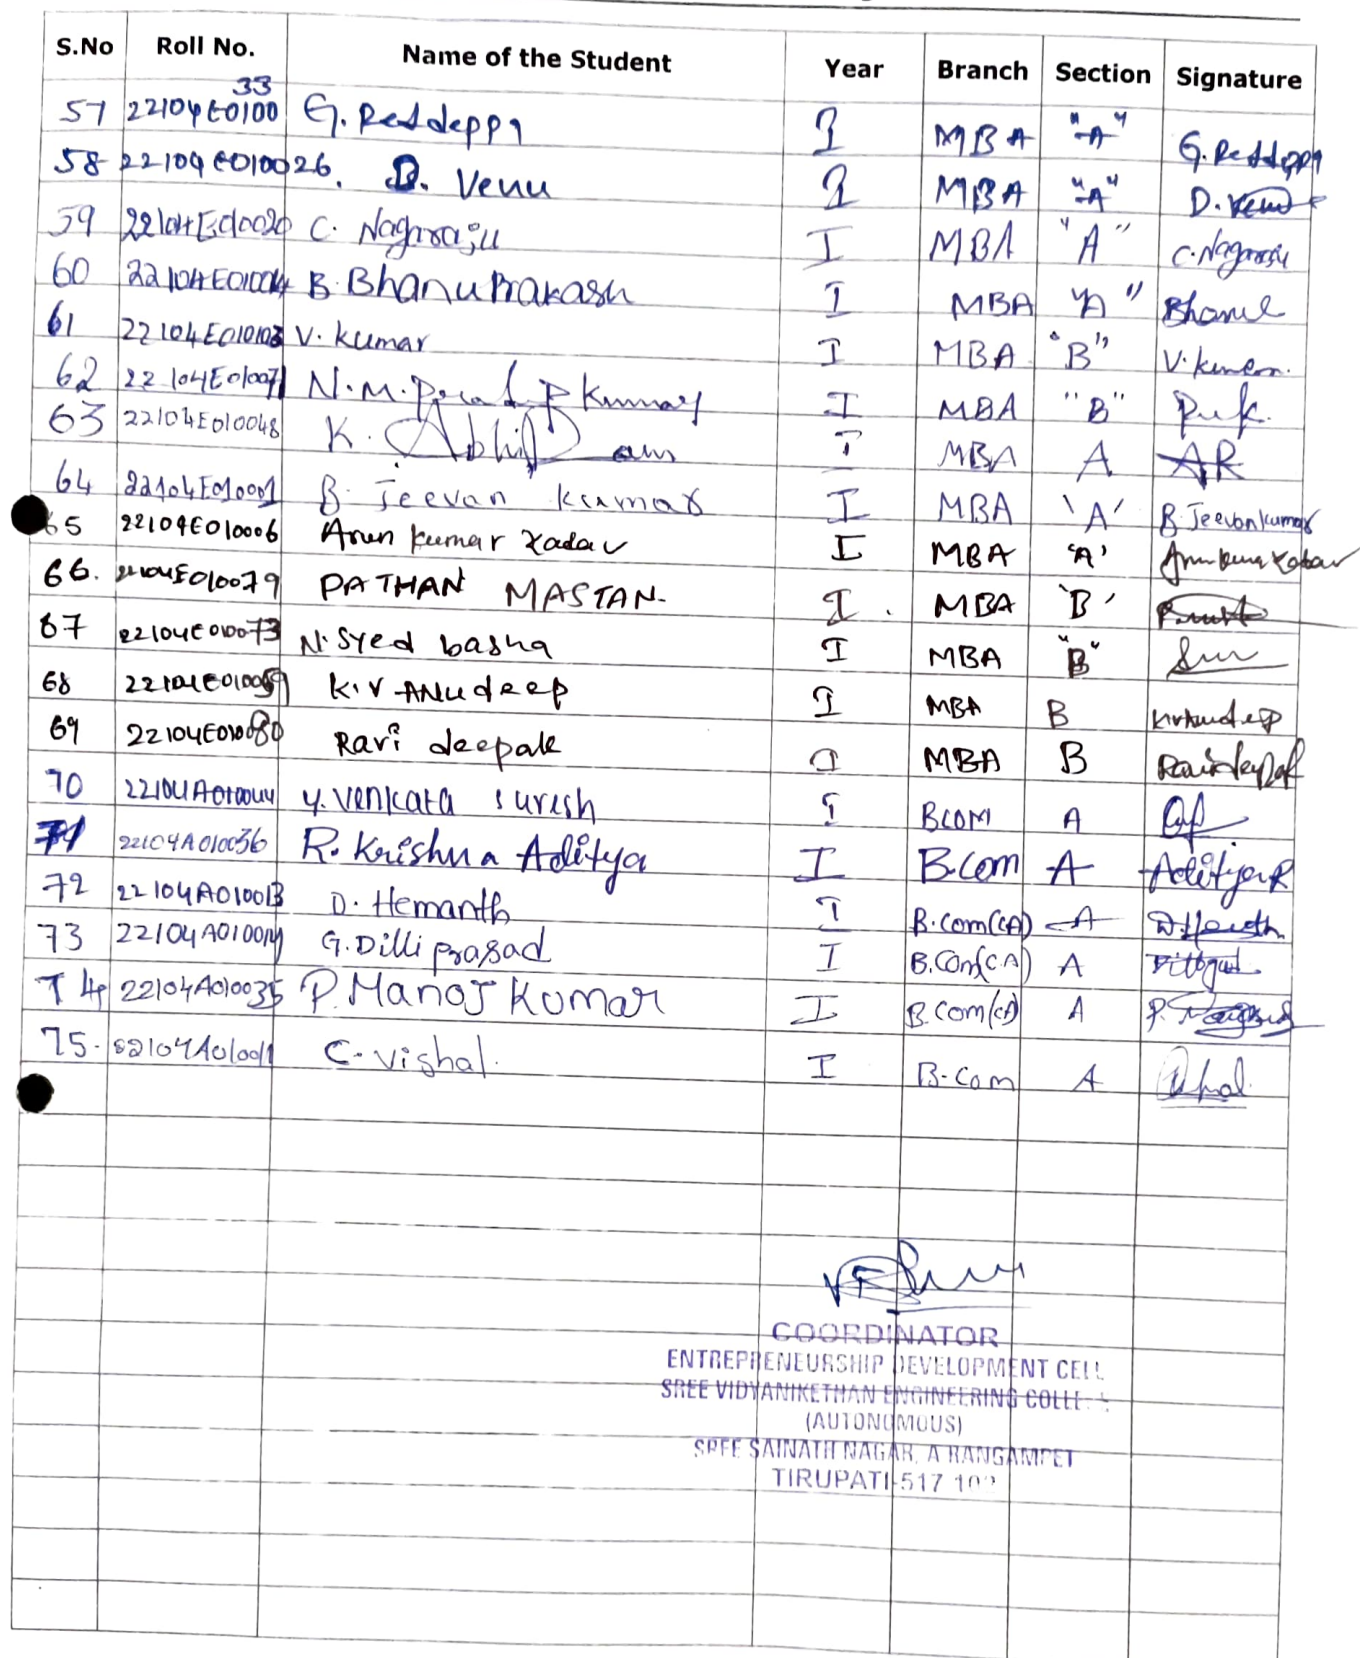 S.No Roll No. Name of the Student Year Branch Section Signature
33
57 22104E0100 G. Reddeppa I MBA "A" G. Reddeppa
58 22104E010026. D. Venu I MBA "A" D. Venu
59 22104E010020 C. Nagaraju I MBA "A" C. Nagaraju
60 22104E010014 B. Bhanu Prakash I MBA "A" Bhanu
61 22104E010103 V. Kumar I MBA "B" V. Kumar.
62 22104E010071 N. M. Kumar I MBA "B"
63 22104E010048 K. Abhi Ram I MBA A AR
64 22104E010001 B. Jeevan Kumar I MBA 'A' B Jeevankumar
65 22104E010006 Arun kumar Yadav I MBA 'A' Arun kumar Yadav
66. 22104E010079 PATHAN MASTAN. I. MBA 'B'
67 22104E010073 N. Syed basha I MBA "B"
68 22104E010059 K.V ANUdeep I MBA B KVAnudeep
69 22104E010080 Ravi deepak I MBA B Ravideepak
70 22104A010044 Y. Venkata suresh I BCOM A
71 22104A010036 R. Krishna Aditya I B.com A Aditya R
72 22104A010013 D. Hemanth I B.com(CA) A D. Hemanth
73 22104A010014 G. Dilli prasad I B.Com(CA) A
74 22104A010035 P. Manoj Kumar I B.com(CA) A
75. 22104A010011 C. Vishal. I B.Com A
COORDINATOR
ENTREPRENEURSHIP DEVELOPMENT CELL
SREE VIDYANIKETHAN ENGINEERING COLLE
(AUTONOMOUS)
SREE SAINATH NAGAR, A RANGAMPET
TIRUPATI-517 102